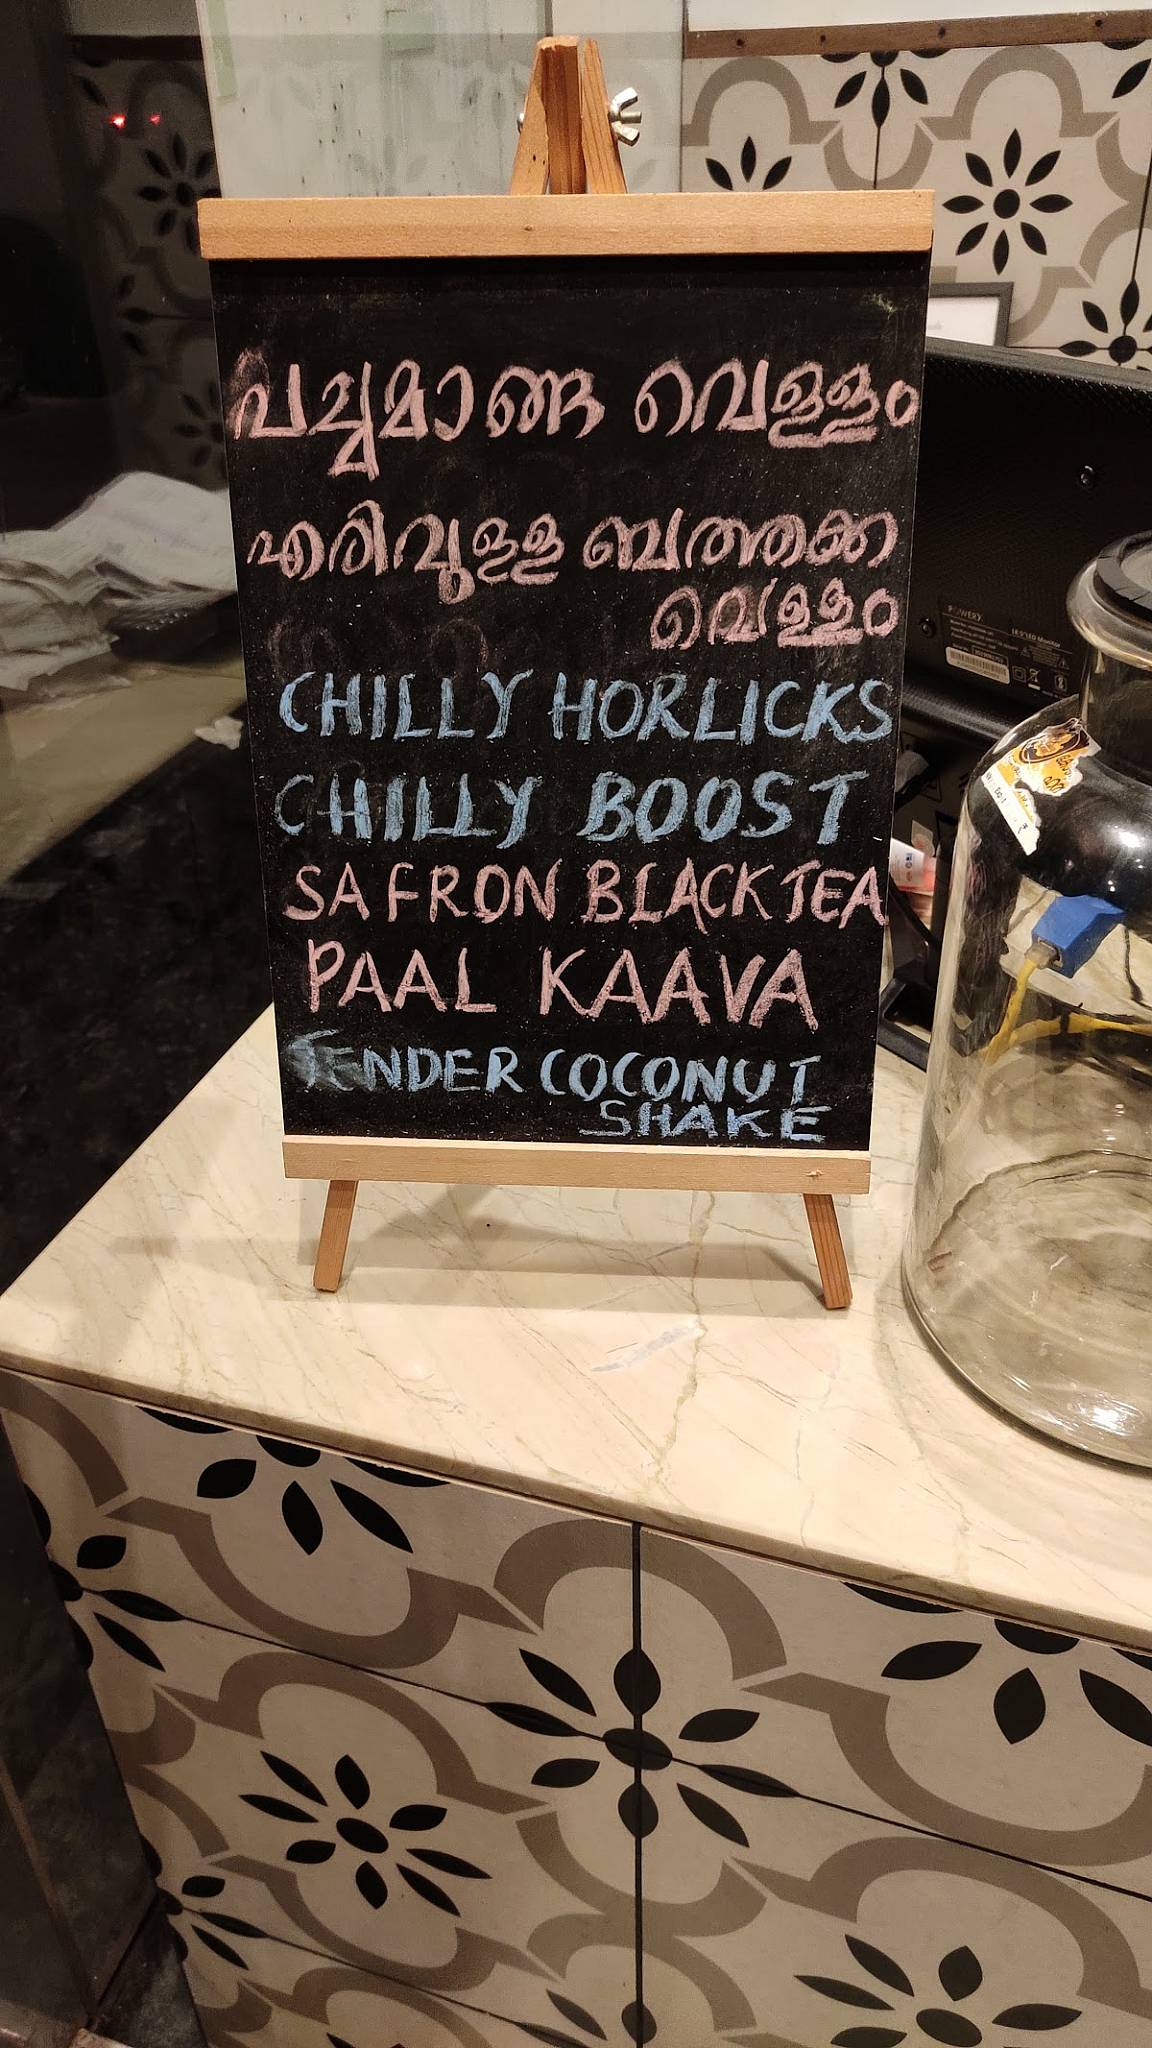 പച്ചമാങ്ങ വെള്ളം
എരിവുള്ള ബത്തക്ക
വെള്ളം
CHILLY HORLICKS
CHILLY BOOST
SAFRON BLACK TEA
PAAL KAAVA
TENDER COCONUT
SHAKE